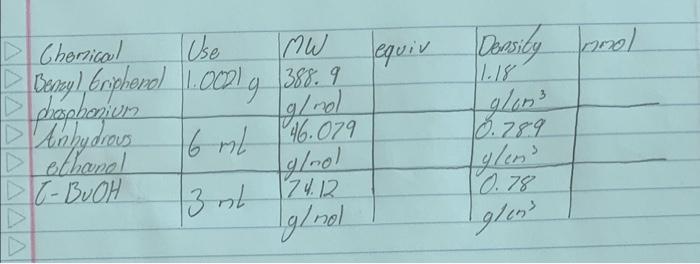 Chemical Use MW equiv Density mmol
Benzyl triphenol 1.0021 g 388.9 1.18
phosphonium g/mol g/cm³
Anhydrous 6 mL 46.079 0.789
ethanol g/mol g/cm³
t-BuOH 3 mL 74.12 0.78
g/mol g/cm³